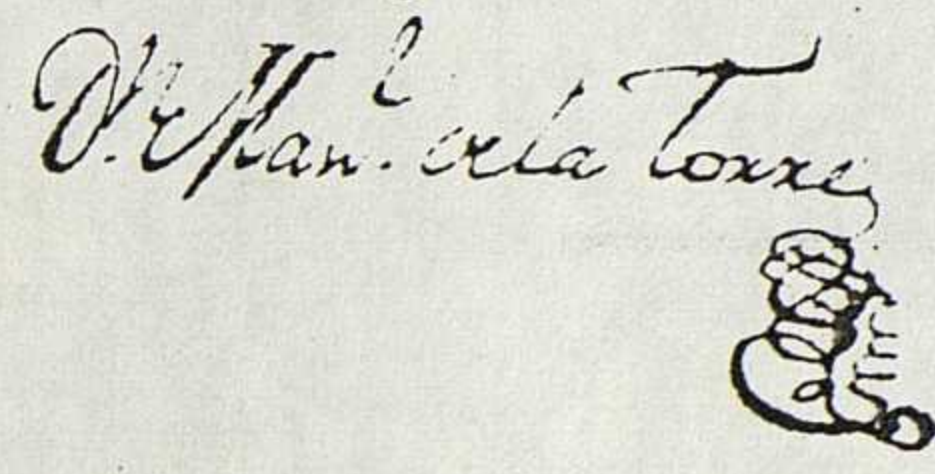 D. Man.l de la Torre